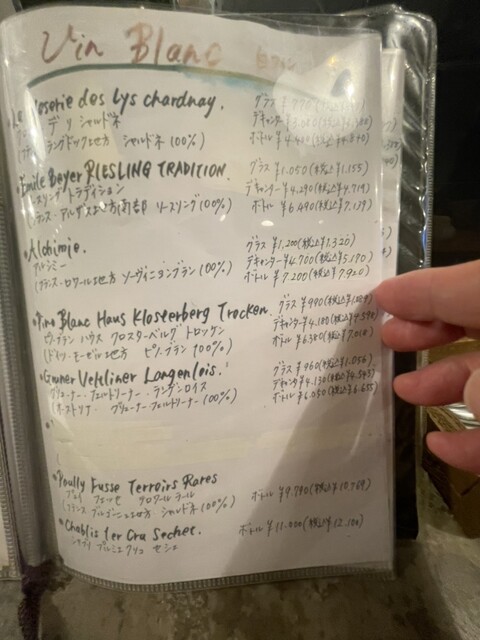 Vin Blanc 白ワイン
des Lys chardnay. グラス ¥770
デリ シャルドネ デキャンター
ラングドック地方 シャルドネ 100%) ボトル ¥4.400(税込¥4.840)
Emile Beyer RIESLING TRADITION. グラス ¥1.050(税込¥1.155)
リースリング トラディション デキャンター ¥4.290(税込¥4.719)
(フランス・アルザス地方 リースリング 100%) ボトル ¥6.490(税込¥7.139)
•Alchimie. グラス ¥1.200(税込¥1.320)
アルシミー デキャンター ¥4.700(税込¥5.170)
(フランス・ロワール地方 ソーヴィニヨンブラン 100%) ボトル ¥7.200(税込¥7.920)
•Pino Blanc Haus Klosterberg Trocken. グラス ¥990
ピノ・ブラン ハウス クロスターベルグ トロッケン デキャンター ¥4.180
(ドイツ・モーゼル地方 ピノ・ブラン 100%) ボトル ¥6.380(税込¥7.018)
•Gruner Veltliner Langenlois. グラス ¥960(税込¥1.056)
グリューナー・フェルトリーナー・ランゲンロイス デキャンター ¥4.130(税込¥4.543)
(オーストリア グリューナーフェルトリーナー 100%) ボトル ¥6.050(税込¥6.655)
•Poully Fusse Terroirs Rares
プイィ フュッセ テロワール ラール ボトル ¥9.790(税込¥10.769)
(フランス ブルゴーニュ地方 シャルドネ 100%)
•Chablis 1er Cru Sechet. ボトル ¥11.000(税込¥12.100)
シャブリ プルミエ クリュ セシェ